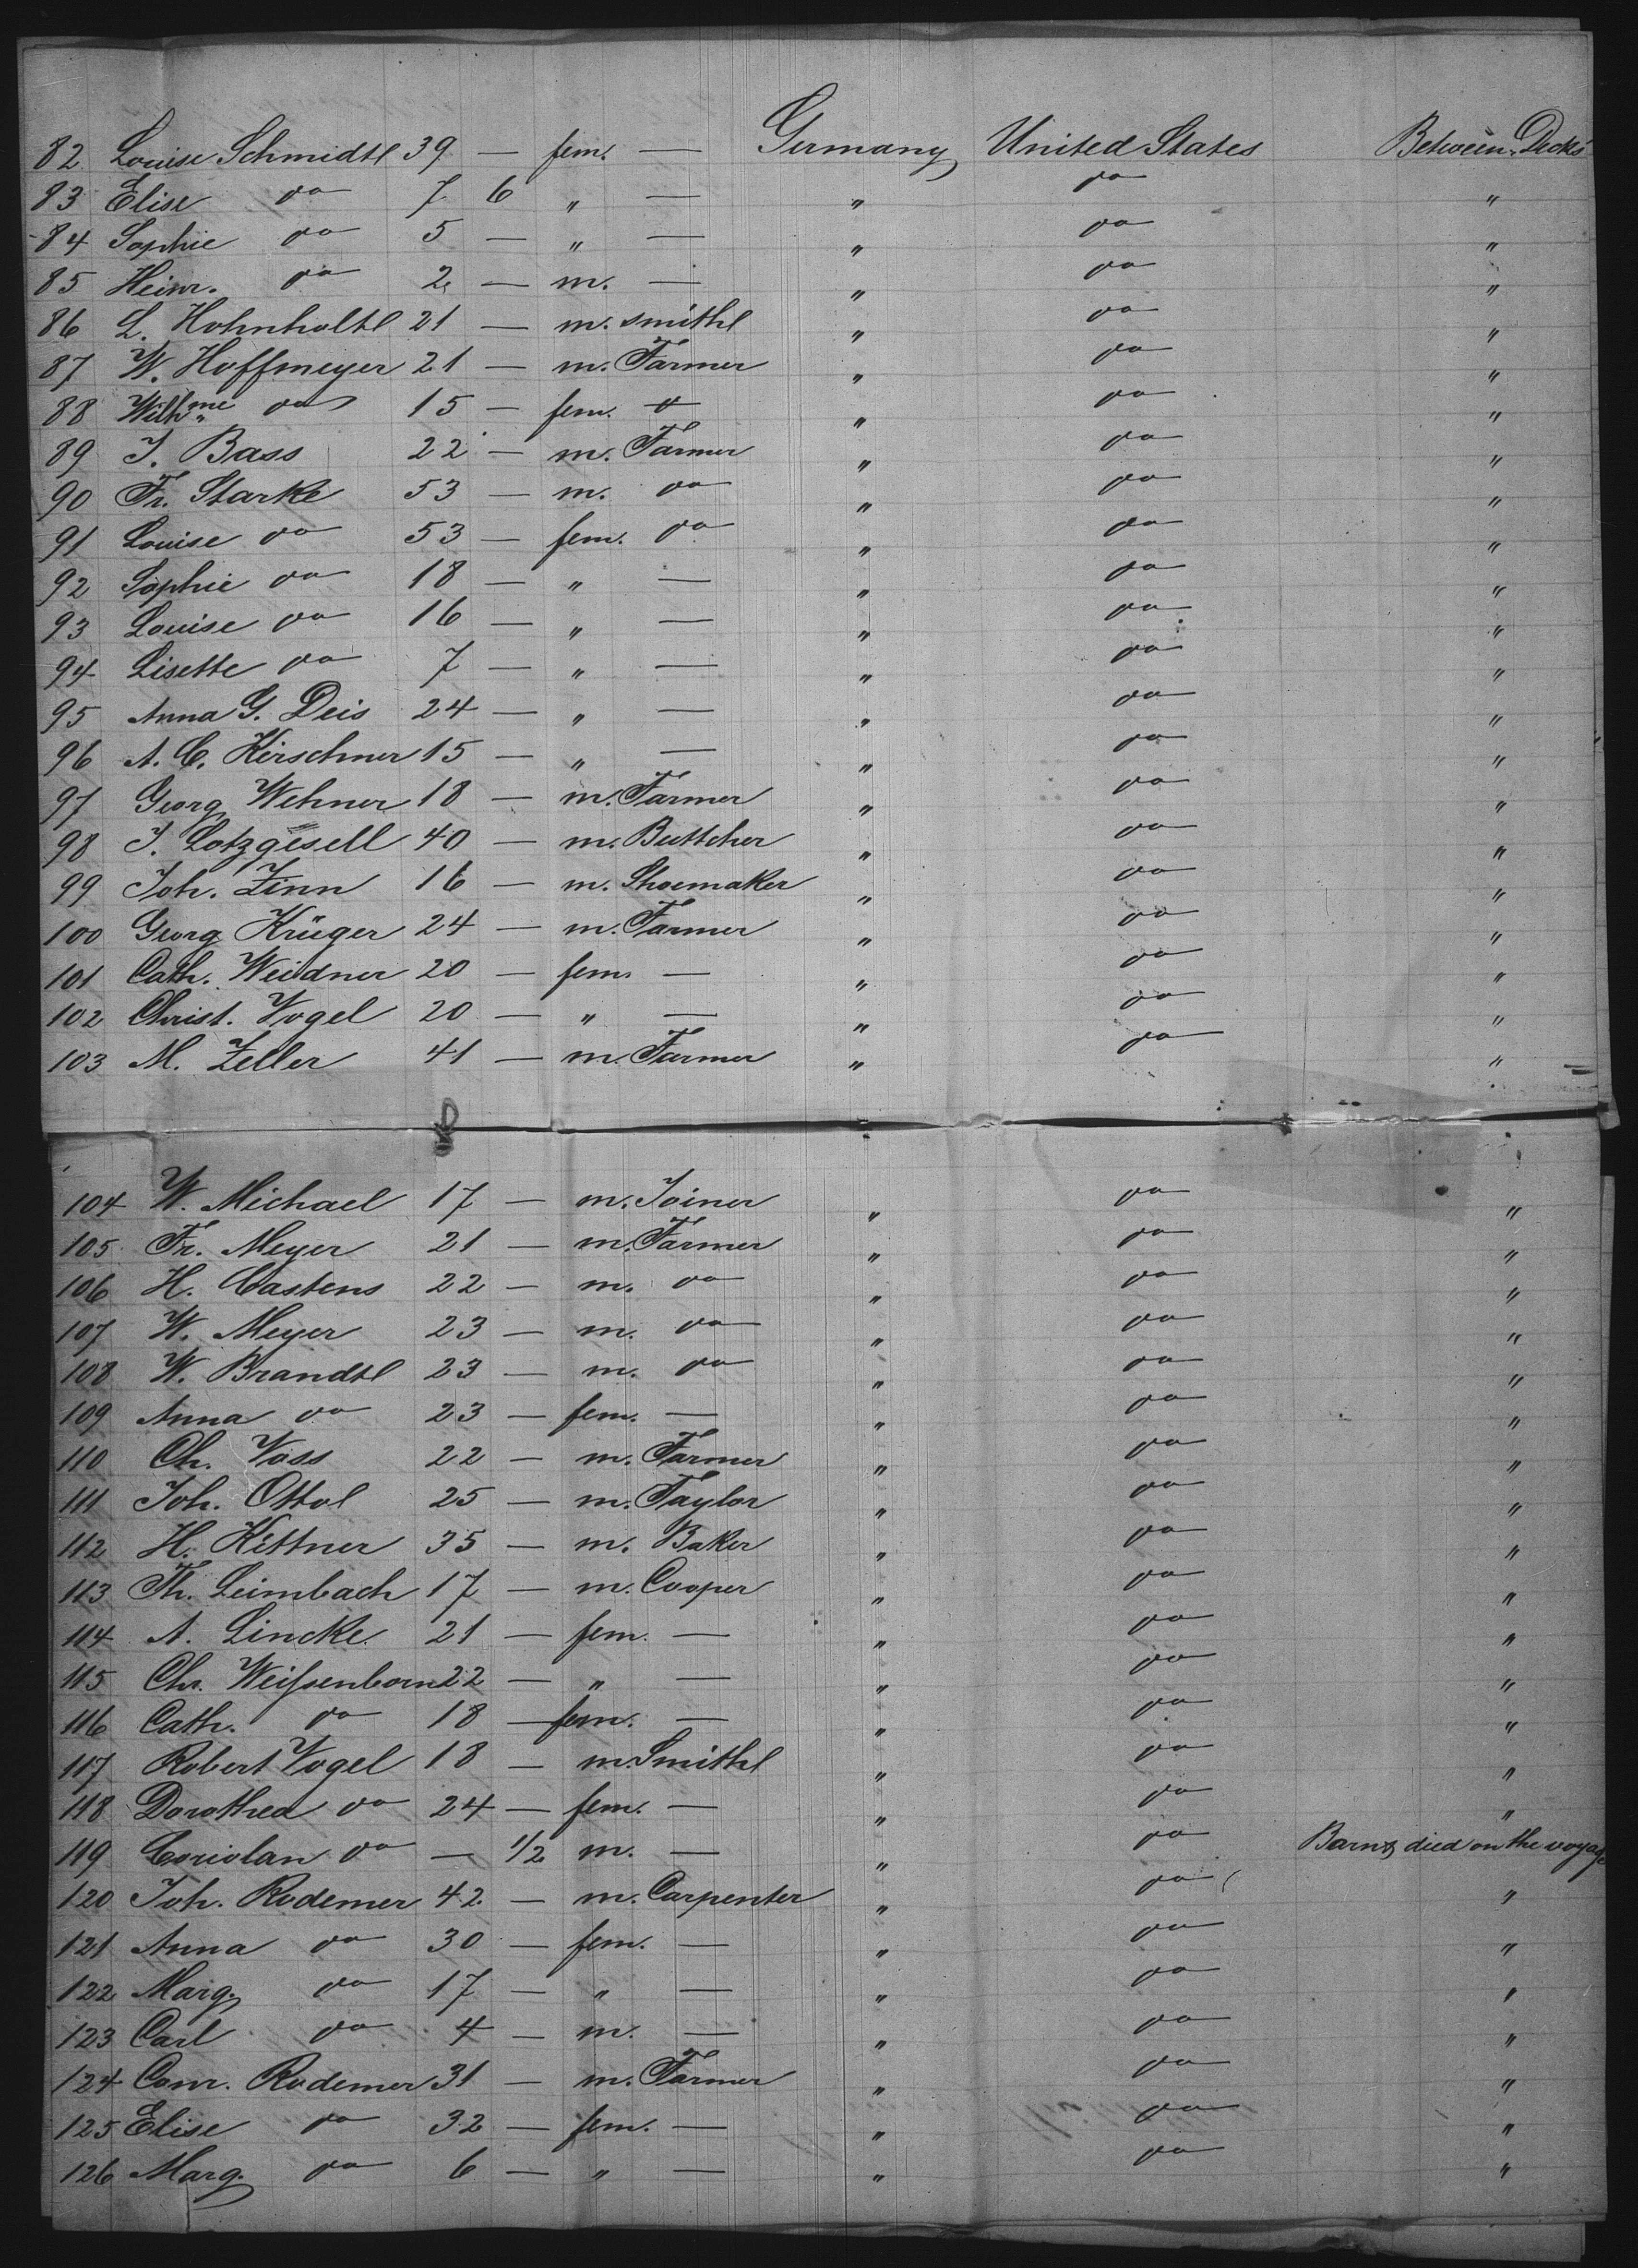 82 Louise Schmidt 39 — fem. — Germany United States Between Decks
83 Elise do 7 6 " — " do "
84 Sophie do 5 — " — " do "
85 Heinr. do 2 — m. — " do "
86 L. Hohnholt 21 — m. smith " do "
87 W. Hoffmeyer 21 — m. Farmer " do "
88 Wilhme do 15 — fem. — " do "
89 J. Bass 22 — m. Farmer " do "
90 Fr. Starke 53 — m. do " do "
91 Louise do 53 — fem. do " do "
92 Sophie do 18 — " — " do "
93 Louise do 16 — " — " do "
94 Lisette do 7 — " — " do "
95 Anna G. Deis 24 — " — " do "
96 A. C. Kirschner 15 — " — " do "
97 Georg Wehner 18 — m. Farmer " do "
98 J. Lotzgesell 40 — m. Buttcher " do "
99 Joh. Zinn 16 — m. Shoemaker " do "
100 Georg Krüger 24 — m. Farmer " do "
101 Cath. Weidner 20 — fem. — " do "
102 Christ. Vogel 20 — " — " do "
103 M. Zeller 41 — m. Farmer " do "
104 W. Michael 17 — m. Joiner " do "
105 Fr. Meyer 21 — m. Farmer " do "
106 H. Castens 22 — m. do " do "
107 W. Meyer 23 — m. do " do "
108 W. Brandt 23 — m. do " do "
109 Anna do 23 — fem. — " do "
110 Ch. Voss 22 — m. Farmer " do "
111 Joh. Ottol 25 — m. Taylor " do "
112 H. Kittner 35 — m. Baker " do "
113 Th. Leimbach 17 — m. Cooper " do "
114 A. Lincke 21 — fem. — " do "
115 Chr. Weißenborn 22 — " — " do "
116 Cath. do 18 — fem. — " do "
117 Robert Vogel 18 — m. Smith " do "
118 Dorothea do 24 — fem. — " do "
119 Coriolan do — 1/2 m. — " do died on the voyage
120 Joh. Rodemer 42 — m. Carpenter " do "
121 Anna do 30 — fem. — " do "
122 Marg. do 17 — " — " do "
123 Carl do 4 — m. — " do "
124 Conr. Rodemer 31 — m. Farmer " do "
125 Elise do 32 — fem. — " do "
126 Marg. do 6 — " — " do "